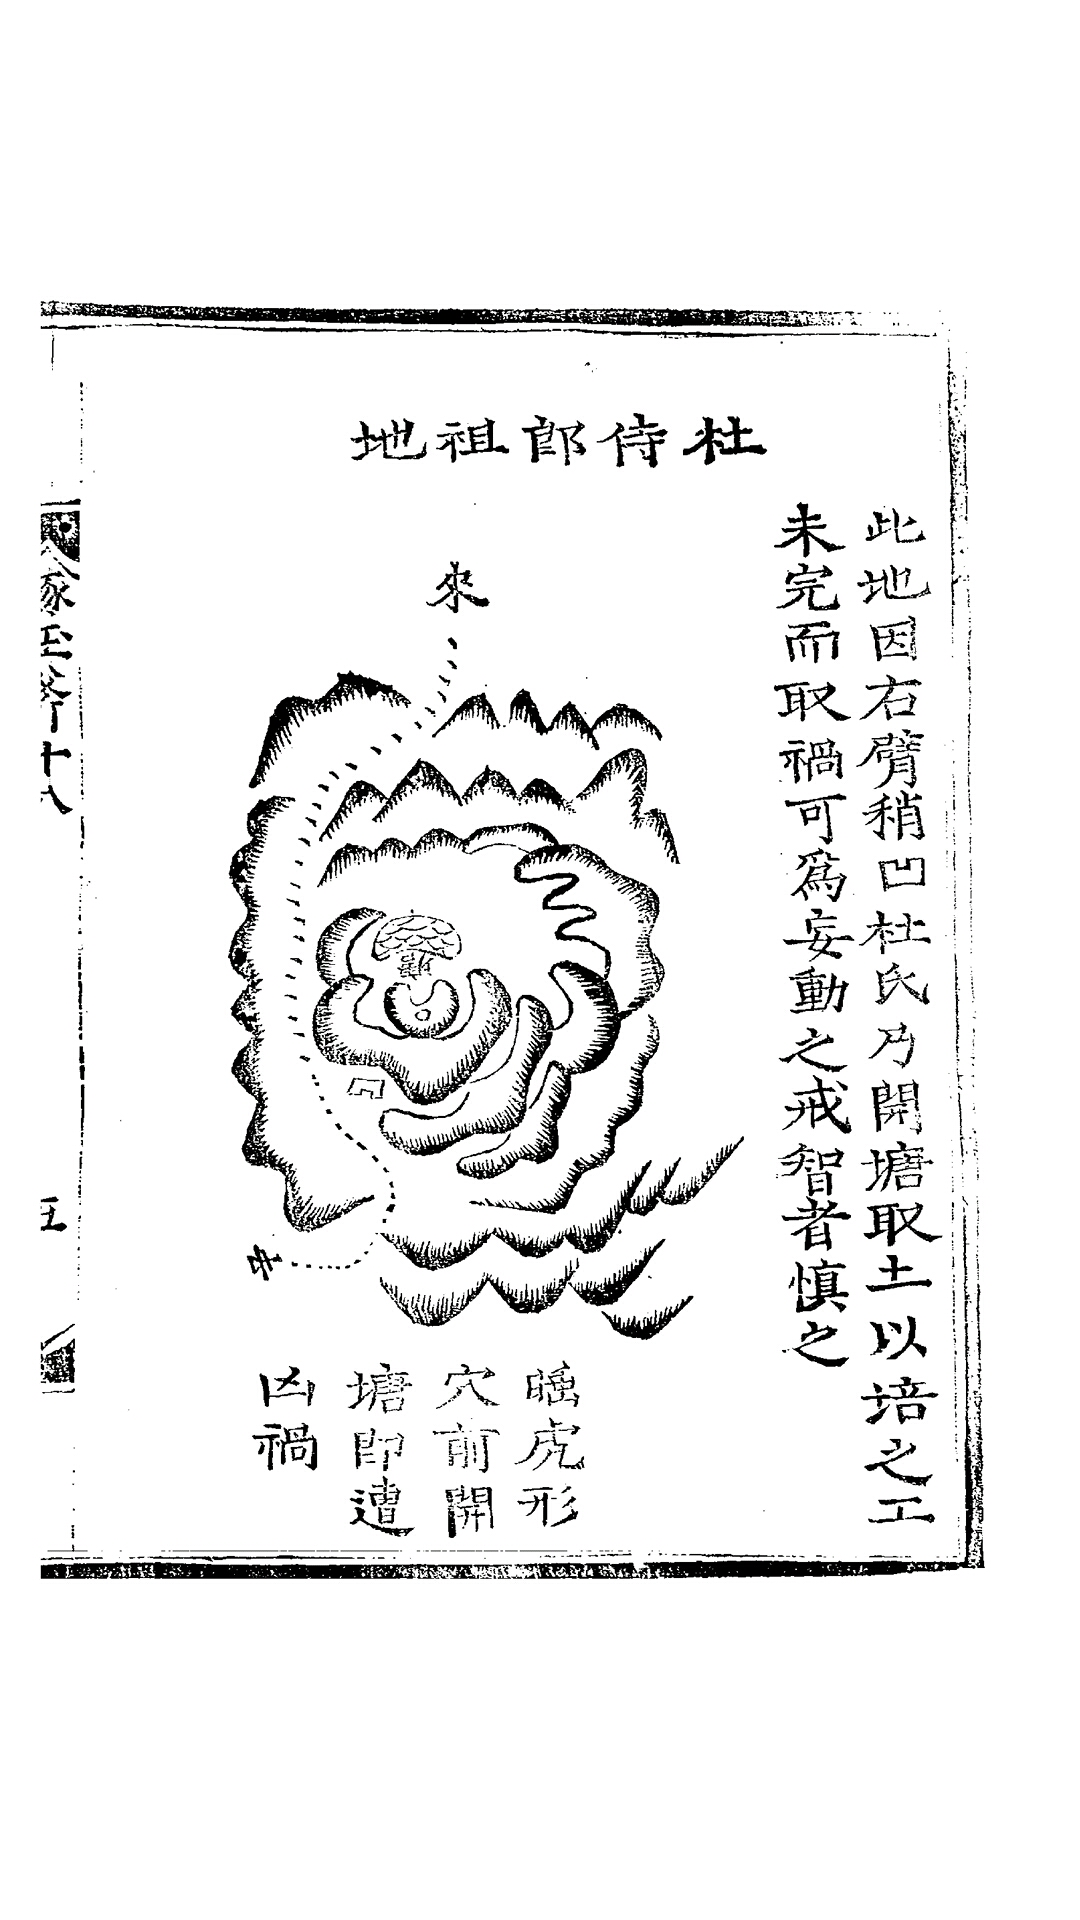 杜侍郎祖地
此地因右臂稍凹杜氏乃開塘取土以培之工
未完而取禍可爲妄動之戒智者慎之
來
去
睡虎形
穴前開
塘即遭
凶禍
琢玉斧十八
五